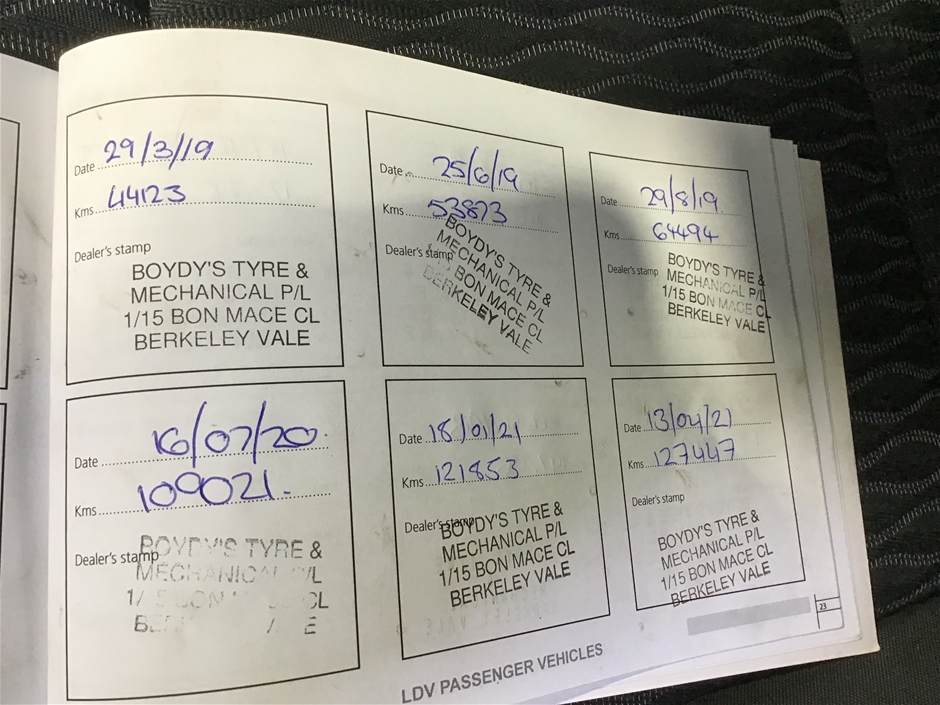 Date 29/3/19
Kms 44123
Dealer's stamp
BOYDY'S TYRE &
MECHANICAL P/L
1/15 BON MACE CL
BERKELEY VALE
Date 25/6/19
Kms 53873
Dealer's stamp
BOYDY'S TYRE &
MECHANICAL P/L
BON MACE CL
BERKELEY VALE
Date 29/8/19
Kms 64494
Dealer's stamp
BOYDY'S TYRE &
MECHANICAL P/L
1/15 BON MACE CL
BERKELEY VALE
Date 16/07/20
Kms 109021.
Dealer's stamp
BOYDY'S TYRE &
MECHANICAL P/L
CL
Date 18/01/21
Kms 121853
Dealer's stamp
BOYDY'S TYRE &
MECHANICAL P/L
1/15 BON MACE CL
BERKELEY VALE
Date 13/04/21
Kms 127447
Dealer's stamp
BOYDY'S TYRE &
MECHANICAL P/L
1/15 BON MACE CL
BERKELEY VALE
LDV PASSENGER VEHICLES
23